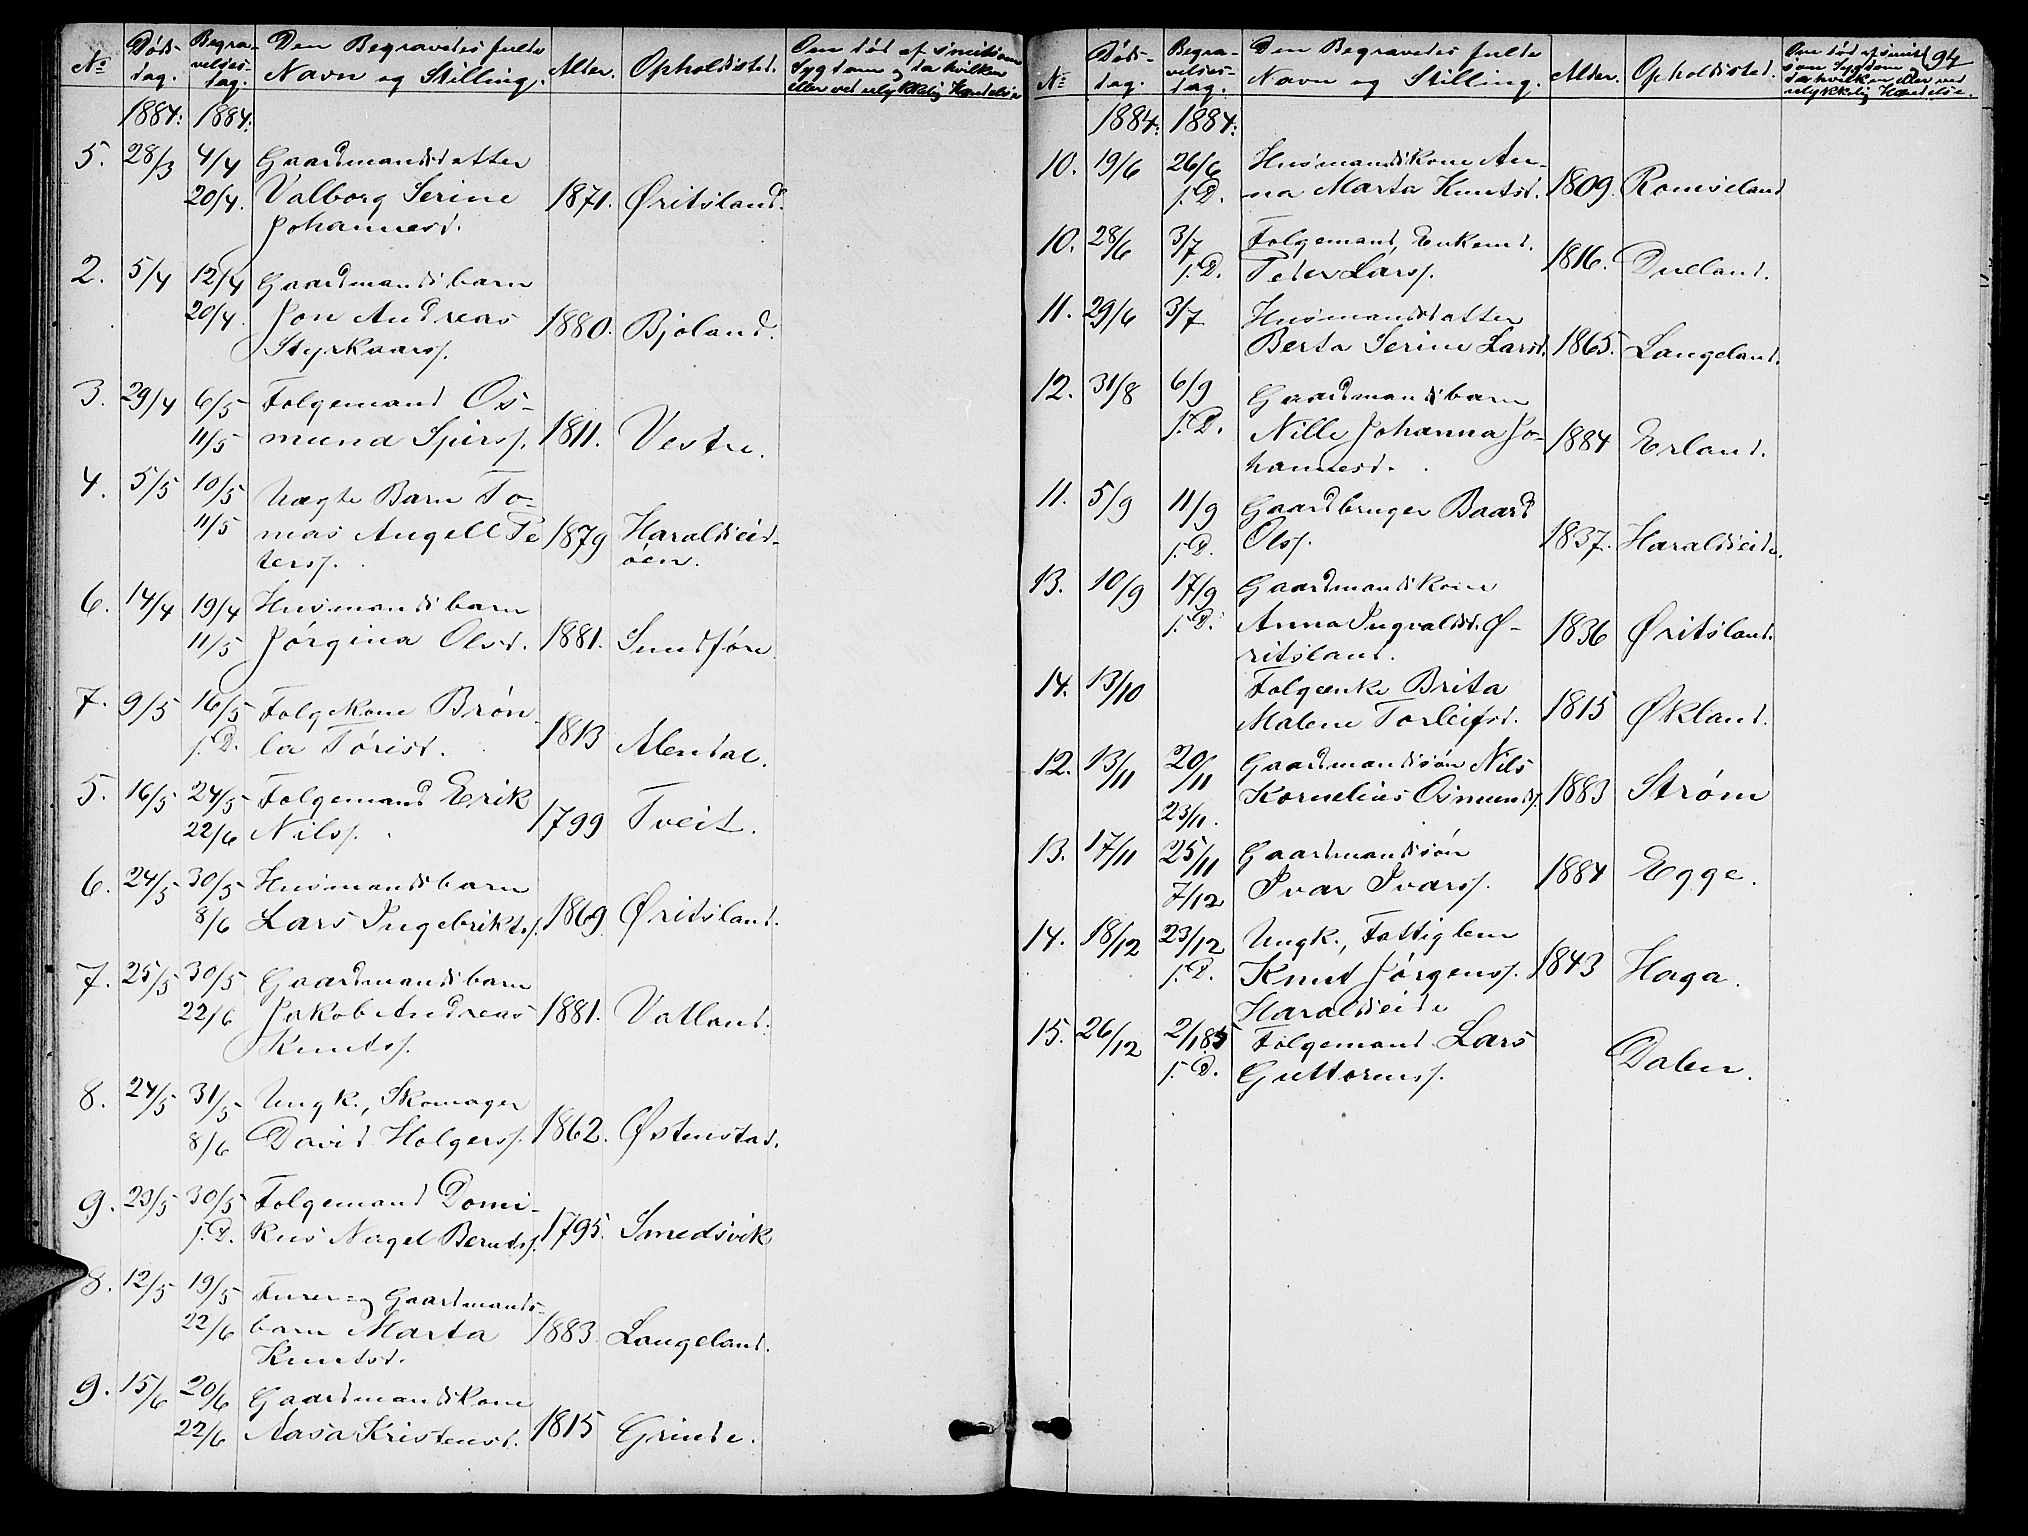 No
Døds-
dag.
Begra-
velses-
dag.
Den Begravedes fulde
Navn og Stilling.
Alder.
Opholdssted.
Om død af smitsom
Sygdom og da hvilken
eller ved ulykkelig Hændelse
1884: 1884:
5. 28/3 4/4 Gaardmandsdatter
20/4. Valborg Serine 1871. Øritsland.
Johannesd.
2. 5/4 12/4 Gaardmandsbarn
20/4. Jon Andreas 1880. Bjoland.
Styrkaarss.
3. 29/4 6/5 Folgemand Os-
11/5 mund Spirss. 1811. Vestre.
4. 5/5 10/5 Uægte Barn To-
11/5 mas Angell Pe 1879 Haraldseid-
terss. øen.
6. 14/4 19/4 Husmandsbarn
11/5 Jørgina Olsd. 1881. Sundføre
7. 9/5 16/5 Folgekone Brøn-
s. D. la Torisd. 1813 Alendal.
5. 16/5 24/5 Folgemand Erik
22/6 Nilss. 1799 Tveit.
6. 24/5 30/5 Husmandsbarn
8/6 Lars Ingebriktss. 1869 Øritsland.
7. 25/5 30/5 Gaardmandsbarn
22/6 Jakob Andreas 1881. Vatland.
Knudss.
8. 24/5 31/5 Ungk., Skomager
8/6 David Holgerss. 1862. Østenstad.
9. 23/5 30/5 Folgemand Domi-
s. D. kus Nagel Berndss. 1795. Smedsvik
8. 12/5 19/5 Furer- og Gaardmands-
22/6 barn Marta 1883. Langeland.
Knutsd.
9. 15/6 20/6 Gaardmandskone
22/6 Aasa Kristensd. 1815 Grinde.
94
No
Døds-
dag.
Begra-
velses-
dag.
Den Begravedes fulde
Navn og Stilling.
Alder.
Opholdssted.
Om død af smit-
som Sygdom og
da hvilken eller ved
ulykkelig Hændelse.
1884: 1884:
10. 19/6 26/6 Husmandskone An-
s. D. na Marta Knutsd. 1809. Romseland
10. 28/6 3/7 Folgemand, Enkemd.
s. D. Peder Larss. 1816. Dueland.
11. 29/6 3/7 Husmandsdatter
Berta Serine Larsd. 1865. Langeland.
12. 31/8 6/9 Gaardmandsbarn
s. D. Nille Johanna Jo- 1884 Erland.
hannesd.
11. 5/9 11/9 Gaardbruger Baard
s. D. Olss. 1837. Haraldseide.
13. 10/9 17/9 Gaardmandskone
s. D. Anna Ingvaldsd. Ø- 1836 Øritsland.
ritsland.
14. 13/10 Folgeenke Brita
Malene Torleifsd. 1815 Økland.
12. 13/11 20/11 Gaardmandssøn Nils
23/11. Kornelius Osmundss. 1883 Strøm
13. 17/11 25/11 Gaardmandssøn
7/12 Ivar Ivarss. 1884 Egge.
14. 18/12 23/12 Ungk., Fattiglem
s. D. Knut Jørgenss. 1843 Haga.
Haraldseide
15. 26/12 2/1 85 Folgemand Lars
s. D. Guttormss. Dalen.